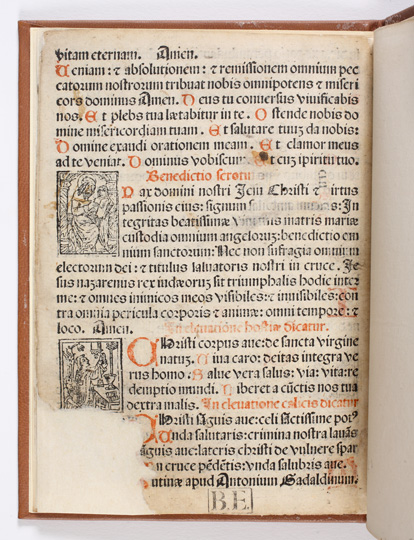 vitam eternam. Amen.
Veniam: ⁊ absolutionem: ⁊ remissionem omnium pec
catorum nostrorum tribuat nobis omnipotens ⁊ miseri
cors dominus Amen. Deus tu conversus vivificabis
nos. Et plebs tua lætabitur in te. Ostende nobis do
mine misericordiam tuam. Et salutare tuuʒ da nobis:
Domine exaudi orationem meam. Et clamor meus
ad te veniat. Dominus vobiscum. Et cuʒ spiritu tuo.
Benedictio
Pax domini nostri Jesu Christi ⁊ virtus
passionis eius: signum In
tegritas beatissimæ virginis matris mariæ
custodia omnium angeloruʒ: benedictio om
nium sanctorum: Nec non sufragia omnium
electorum dei: ⁊ titulus salvatoris nostri in cruce. Je
sus nazarenus rex iudæoruʒ sit triumphalis hodie inter
me: ⁊ omnes inimicos meos visibiles: ⁊ invisibiles: con
tra omnia pericula corporis ⁊ animæ: omni tempore: ⁊
loco. Amen. In elevatione hostiæ dicatur.
Christi corpus ave: de sancta virgine
natuʒ. Viva caro: deitas integra ve
rus homo: Salve vera salus: via: vita: re
demptio mundi. Liberet a cũctis nos tua
dextra malis. In elevatione calicis dicatur
Christi sãguis ave: celi sãctissime pot
Unda salutaris: crimina nostra lavãs
sãguis ave: lateris christi de vulnere spar
in cruce pẽdẽtis: vnda salubris ave.
utinæ apud Antonium Gadaldinum.
B.E.